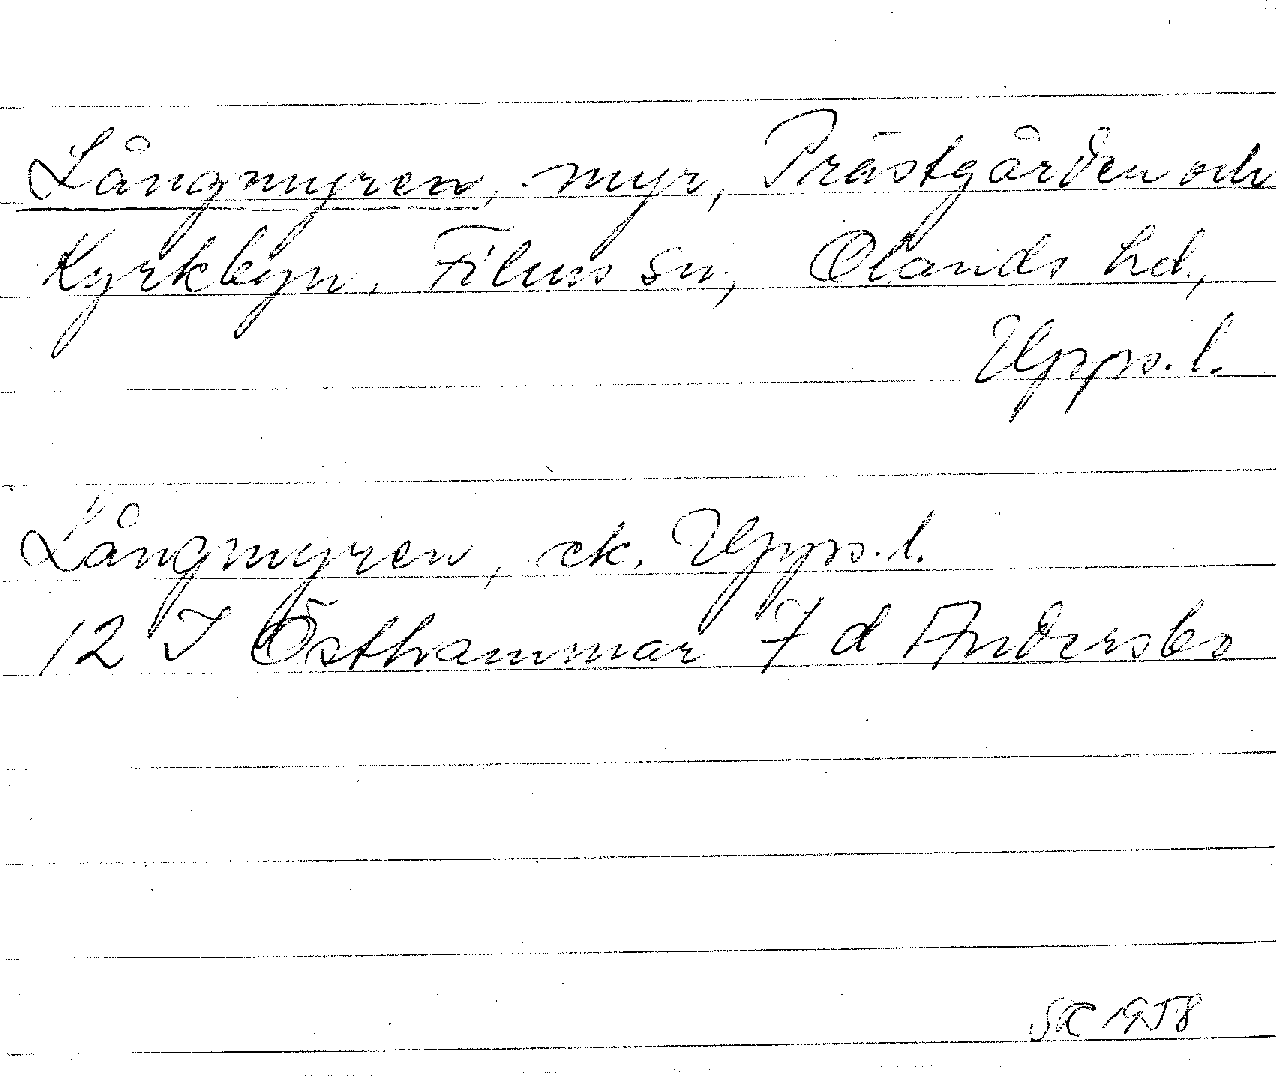 Långmyren, myr, Prästgården och
Kyrkbyn, Films sn, Olands hd,
Upps. l.
Långmyren, ek. Upps. l.
12 I Östhammar 7 d Andersbo
SK 1958